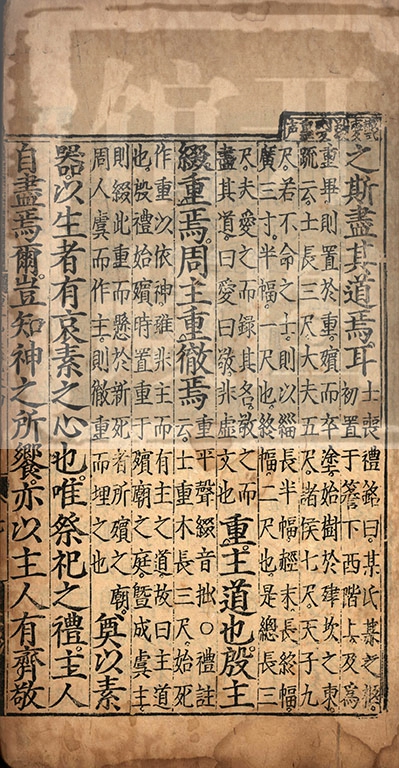 之斯盡其道焉耳士喪禮銘曰某氏某之柩
初置于簷下西階上及爲
重畢則置於重殯而卒塗始樹於肂坎之東
䟽云士長三尺大夫五尺諸侯七尺天子九
尺若不命之士則以緇長半幅䞓末長終幅
廣三寸半幅一尺也終幅二尺也是總長三
尺夫愛之而錄其名敬之而
盡其道曰愛曰敬非虛文也
重主道也殷主
綴重焉周主重徹焉重平聲綴音拙○禮註
云士重木長三尺始死
作重以依神雖非主而有主之道故曰主道
也殷禮始殯時置重于殯廟之庭暨成虞主
則綴此重而懸於新死者所殯之廟
周人虞而作主則徹重而埋之也
奠以素
器以生者有哀素之心也唯祭祀之禮主人
自盡焉爾豈知神之所饗亦以主人有齊敬